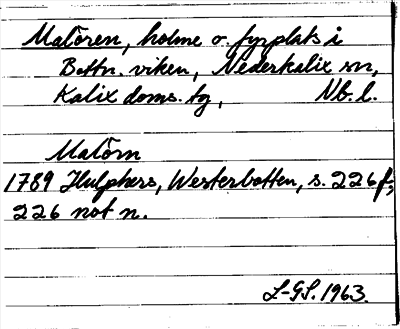 Malören, holme o. fyrplats i
Bottn. viken, Nederkalix sn,
Kalix doms. tg, Nb. l.
Malörn
1789 Hülphers, Westerbotten, s. 226 f,
226 not n.
L-GS. 1963.